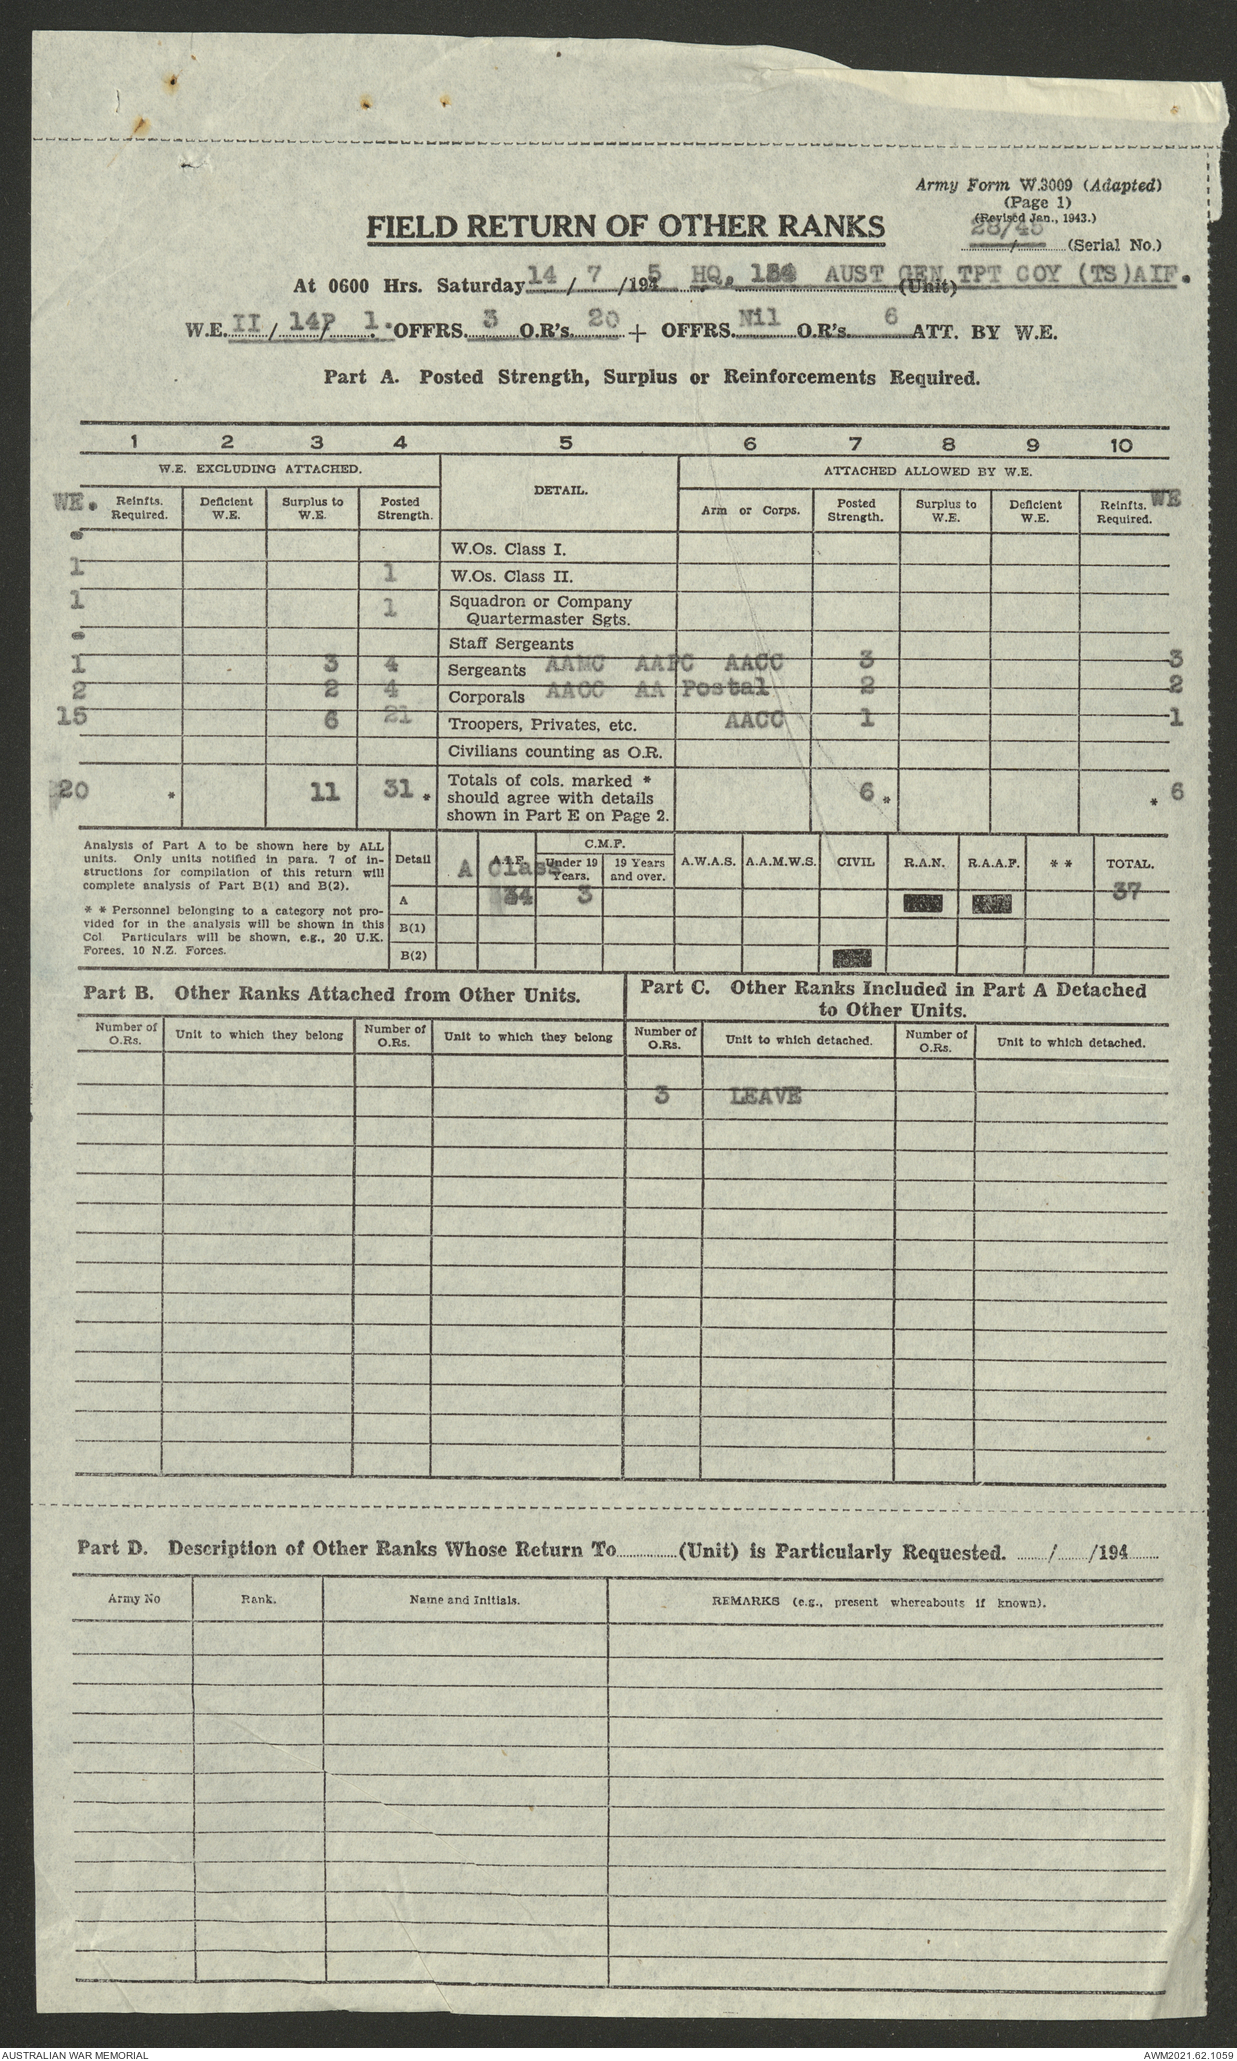 Army Form W.3009 (Adapted)
(Page 1)
(Revised Jan., 1943.)
FIELD RETURN OF OTHER RANKS
28/45 (Serial No.)
At 0600 Hrs. Saturday 14 / 7 /194 5 HQ, AUST GEN TPT COY (TS)AIF. (Unit)
W.E. II / 14P / 1. OFFRS. 3 O.R's. 20 + OFFRS. Nil O.R's. 6 ATT. BY W.E.
Part A. Posted Strength, Surplus or Reinforcements Required.
1 2 3 4 5 6 7 8 9 10
W.E. EXCLUDING ATTACHED. DETAIL. ATTACHED ALLOWED BY W.E.
WE. Reinfts. Required. Deficient W.E. Surplus to W.E. Posted Strength. Arm or Corps. Posted Strength. Surplus to W.E. Deficient W.E. Reinfts. Required. WE
- W.Os. Class I.
1 1 W.Os. Class II.
1 1 Squadron or Company
Quartermaster Sgts.
- Staff Sergeants
1 3 4 Sergeants AAMC AAPC AACC 3 3
2 2 4 Corporals AACC AA Postal 2 2
15 6 21 Troopers, Privates, etc. AACC 1 1
Civilians counting as O.R.
20 * 11 31 * Totals of cols. marked * 6 * * 6
should agree with details
shown in Part E on Page 2.
Analysis of Part A to be shown here by ALL
units. Only units notified in para. 7 of in-
structions for compilation of this return will
complete analysis of Part B(1) and B(2).
* * Personnel belonging to a category not pro-
vided for in the analysis will be shown in this
Col. Particulars will be shown, e.g., 20 U.K.
Forces, 10 N.Z. Forces.
Detail A Class A.I.F. C.M.F. Under 19 Years. 19 Years and over. A.W.A.S. A.A.M.W.S. CIVIL R.A.N. R.A.A.F. * * TOTAL.
A 34 3 37
B(1)
B(2)
Part B. Other Ranks Attached from Other Units.
Part C. Other Ranks Included in Part A Detached
to Other Units.
Number of O.Rs. Unit to which they belong Number of O.Rs. Unit to which they belong Number of O.Rs. Unit to which detached. Number of O.Rs. Unit to which detached.
3 LEAVE
Part D. Description of Other Ranks Whose Return To (Unit) is Particularly Requested. / /194
Army No Rank. Name and Initials. REMARKS (e.g., present whereabouts if known).
AUSTRALIAN WAR MEMORIAL AWM2021.62.1059